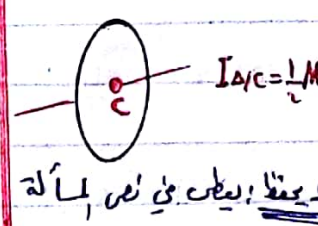 C
I∆/C = ½ M
يحفظ؛ يعطى في نص المسألة